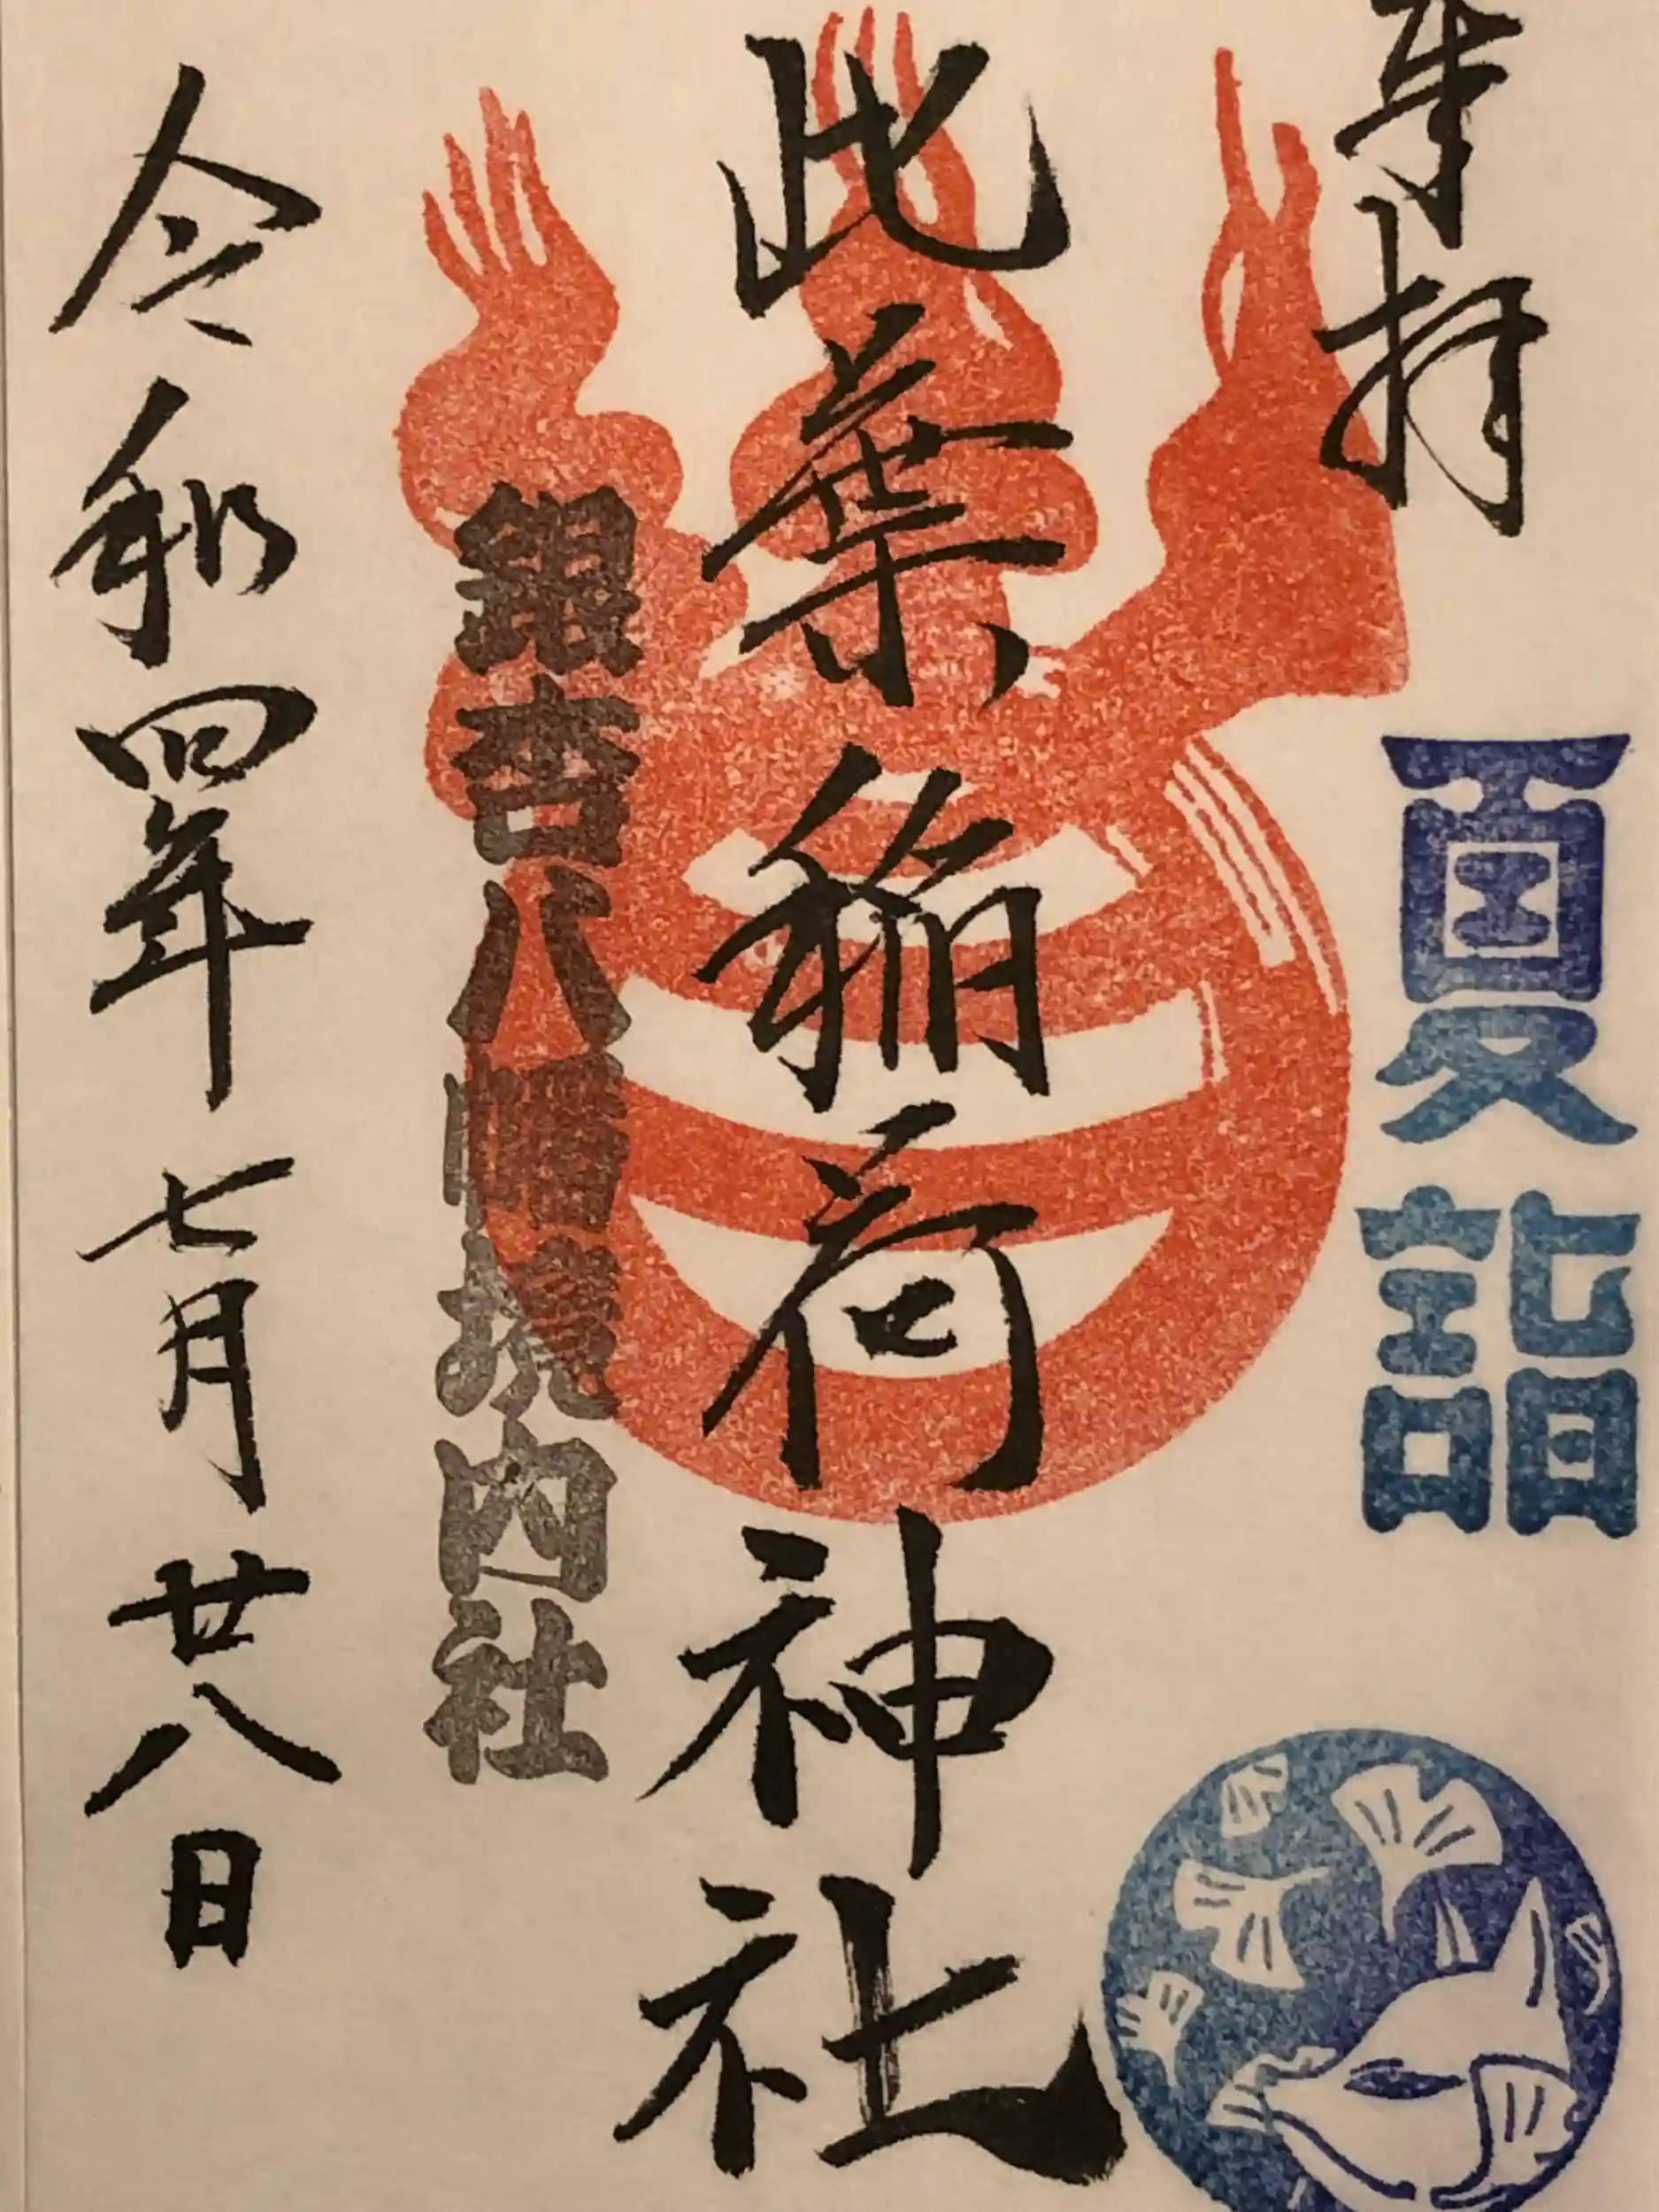 奉拝
夏詣
此葉稲荷神社
銀杏八幡宮境内社
令和四年七月廿八日